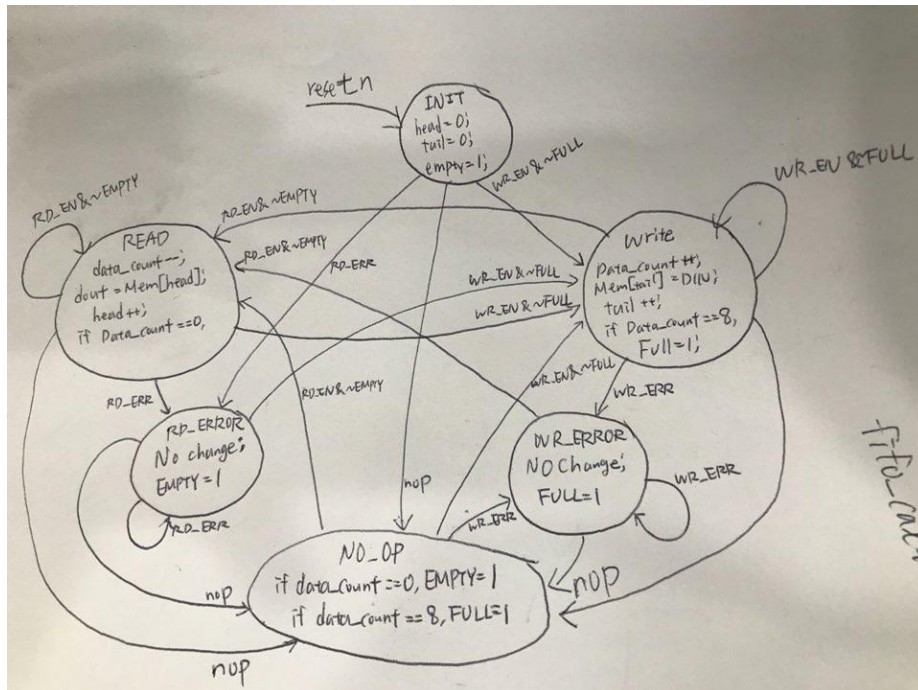 reset_n
INIT
head=0;
tail=0;
empty=1;
WR_EN&~FULL
WR_EN&~FULL
RD_EN&~EMPTY
RD_EN&~EMPTY
READ
data_count--;
dout=Mem[head];
head++;
if Data_count==0,
RD_EN&~EMPTY
RD_ERR
WR_EN&~FULL
WR_EN&~FULL
Write
Data_count++;
Mem[tail]=DIN;
tail++;
if Data_count==8,
Full=1;
RD_ERR
RD_EN&~EMPTY
WR_EN&~FULL
WR_ERR
RD_ERROR
No change;
EMPTY=1
RD_ERR
WR_ERROR
NO Change;
FULL=1
WR_ERR
nop
WR_ERR
NO_OP
if data_count==0, EMPTY=1
if data_count==8, FULL=1
nop
nop
nop